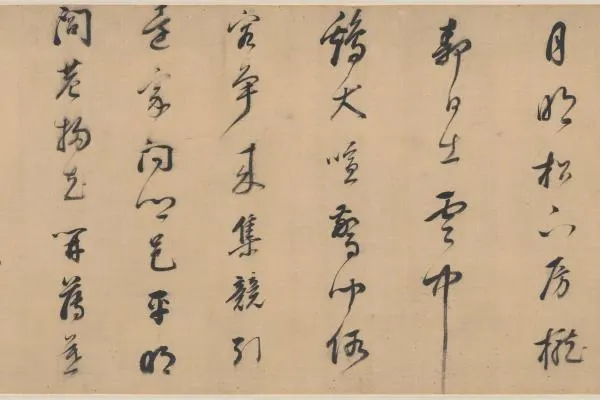 月明松下房櫳
靜日出雲中
鷄犬喧驚聞俗
客爭來集競引
還家問都邑平明
閭巷掃花開薄暮